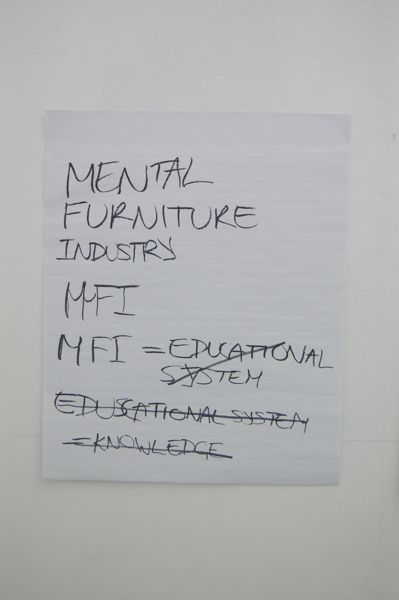 MENTAL
FURNITURE
INDUSTRY
MFI
MFI = EDUCATIONAL
SYSTEM
EDUCATIONAL SYSTEM
= KNOWLEDGE